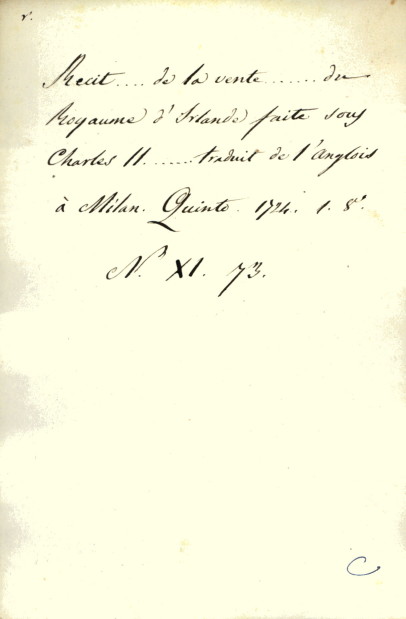 r.
Recit .... de la vente ....... du
Royaume d'Irlande faite sous
Charles II ....... traduit de l'Anglois
à Milan. Quinto. 1724. 1. 8º.
N. XI. 73.
C